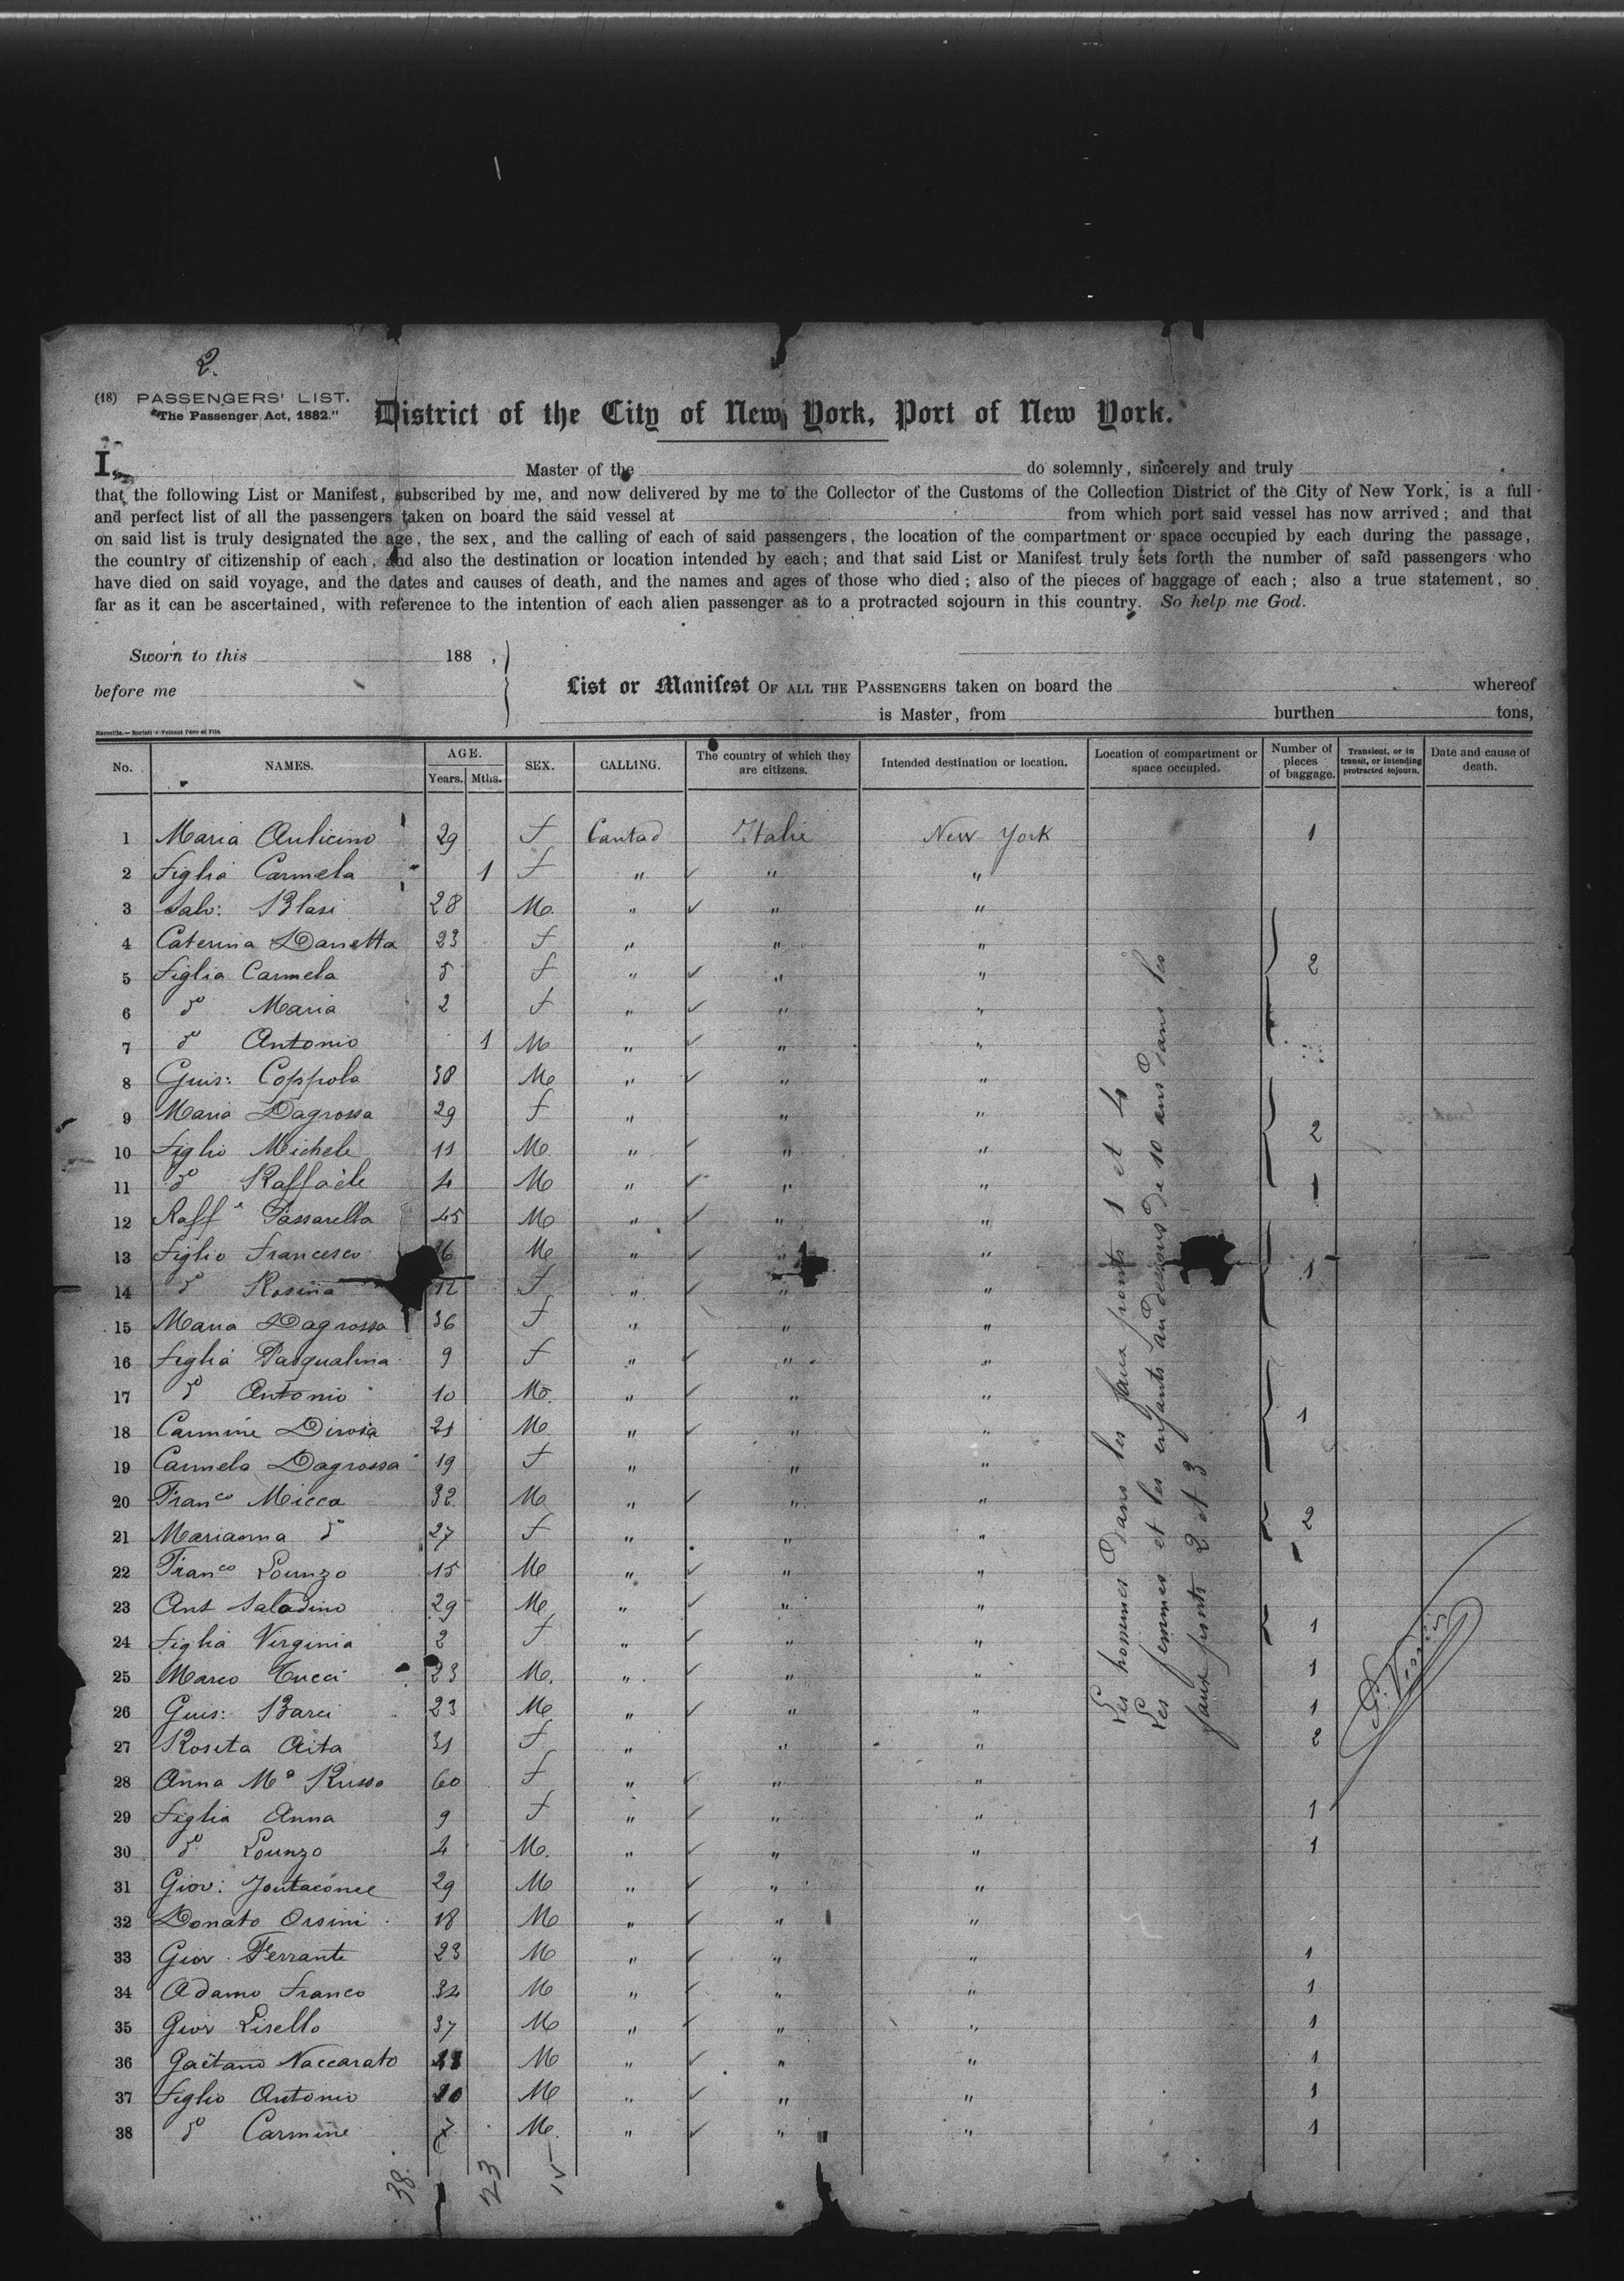 2.
(18) PASSENGERS' LIST.
"The Passenger Act, 1882."
District of the City of New York, Port of New York.
I, Master of the do solemnly, sincerely and truly
that the following List or Manifest, subscribed by me, and now delivered by me to the Collector of the Customs of the Collection District of the City of New York, is a full
and perfect list of all the passengers taken on board the said vessel at from which port said vessel has now arrived; and that
on said list is truly designated the age, the sex, and the calling of each of said passengers, the location of the compartment or space occupied by each during the passage,
the country of citizenship of each, and also the destination or location intended by each; and that said List or Manifest truly sets forth the number of said passengers who
have died on said voyage, and the dates and causes of death, and the names and ages of those who died; also of the pieces of baggage of each; also a true statement, so
far as it can be ascertained, with reference to the intention of each alien passenger as to a protracted sojourn in this country. So help me God.
Sworn to this 188 ,
before me
List or Manifest OF ALL THE PASSENGERS taken on board the whereof
is Master, from burthen tons,
No. NAMES. AGE. Years. Mths. SEX. CALLING. The country of which they are citizens. Intended destination or location. Location of compartment or space occupied. Number of pieces of baggage. Transient, or in transit, or intending protracted sojourn. Date and cause of death.
1 Maria Aulicino 29 f Contad Italie New York 1
2 figlia Carmela 1 f " " "
3 Salv: Blasi 28 M. " " "
4 Caterina Danetta 23 f " " "
5 figlia Carmela 5 f " " " 2
6 do Maria 2 f " " "
7 do Antonio 1 M " " "
8 Guis: Coppola 38 M " " "
9 Maria Dagrossa 29 f " " "
10 figlio Michele 11 M " " " 2
11 do Raffaele 4 M " " " 1
12 Raffe Passarella 45 M " " "
13 figlio Francesco 16 M " " " 1
14 do Rosina 12 f " " "
15 Maria Dagrossa 36 f " " "
16 figlia Pasqualina 9 f " " "
17 do Antonio 10 M. " " "
18 Carmine Dirosa 21 M. " " " 1
19 Carmela Dagrossa 19 f " " "
20 Franco Micca 32 M " " "
21 Marianna do 27 f " " " 2
22 Franco Lounzo 15 M " " "
23 Ant Saladino 29 M " " "
24 figlia Virginia 2 f " " " 1
25 Marco Tucci 23 M. " " " 1
26 Guis: Barci 23 M " " " 1
27 Roseta Aita 31 f " " " 2
28 Anna Ma Russo 60 f " " "
29 figlia Anna 9 f " " " 1
30 do Lounzo 4 M. " " " 1
31 Giov: 29 M " " "
32 Donato Orsini 18 M " " "
33 Giov Ferrante 23 M " " " 1
34 Adamo Franco 34 M " " " 1
35 Giov Lisello 37 M " " " 1
36 Gaëtano Naccarato M " " " 1
37 figlio Antonio 10 M " " " 1
38 do Carmine 7 M. " " " 1
Les hommes dans les faux ponts 1 et 4
Les femmes et les enfants au dessous de 10 ans dans les
faux ponts 2 et 3
38. 23 15